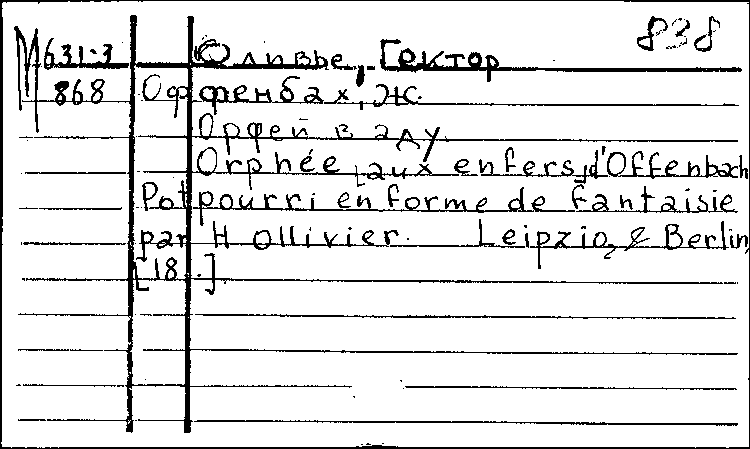 838
М 631-3 Оливье, Гектор
868 Оффенбах, Ж.
Орфей в аду.
Orphée [aux enfers] d'Offenbach
Pot pourri en forme de fantaisie
par H Ollivier. Leipzig & Berlin,
[18..]